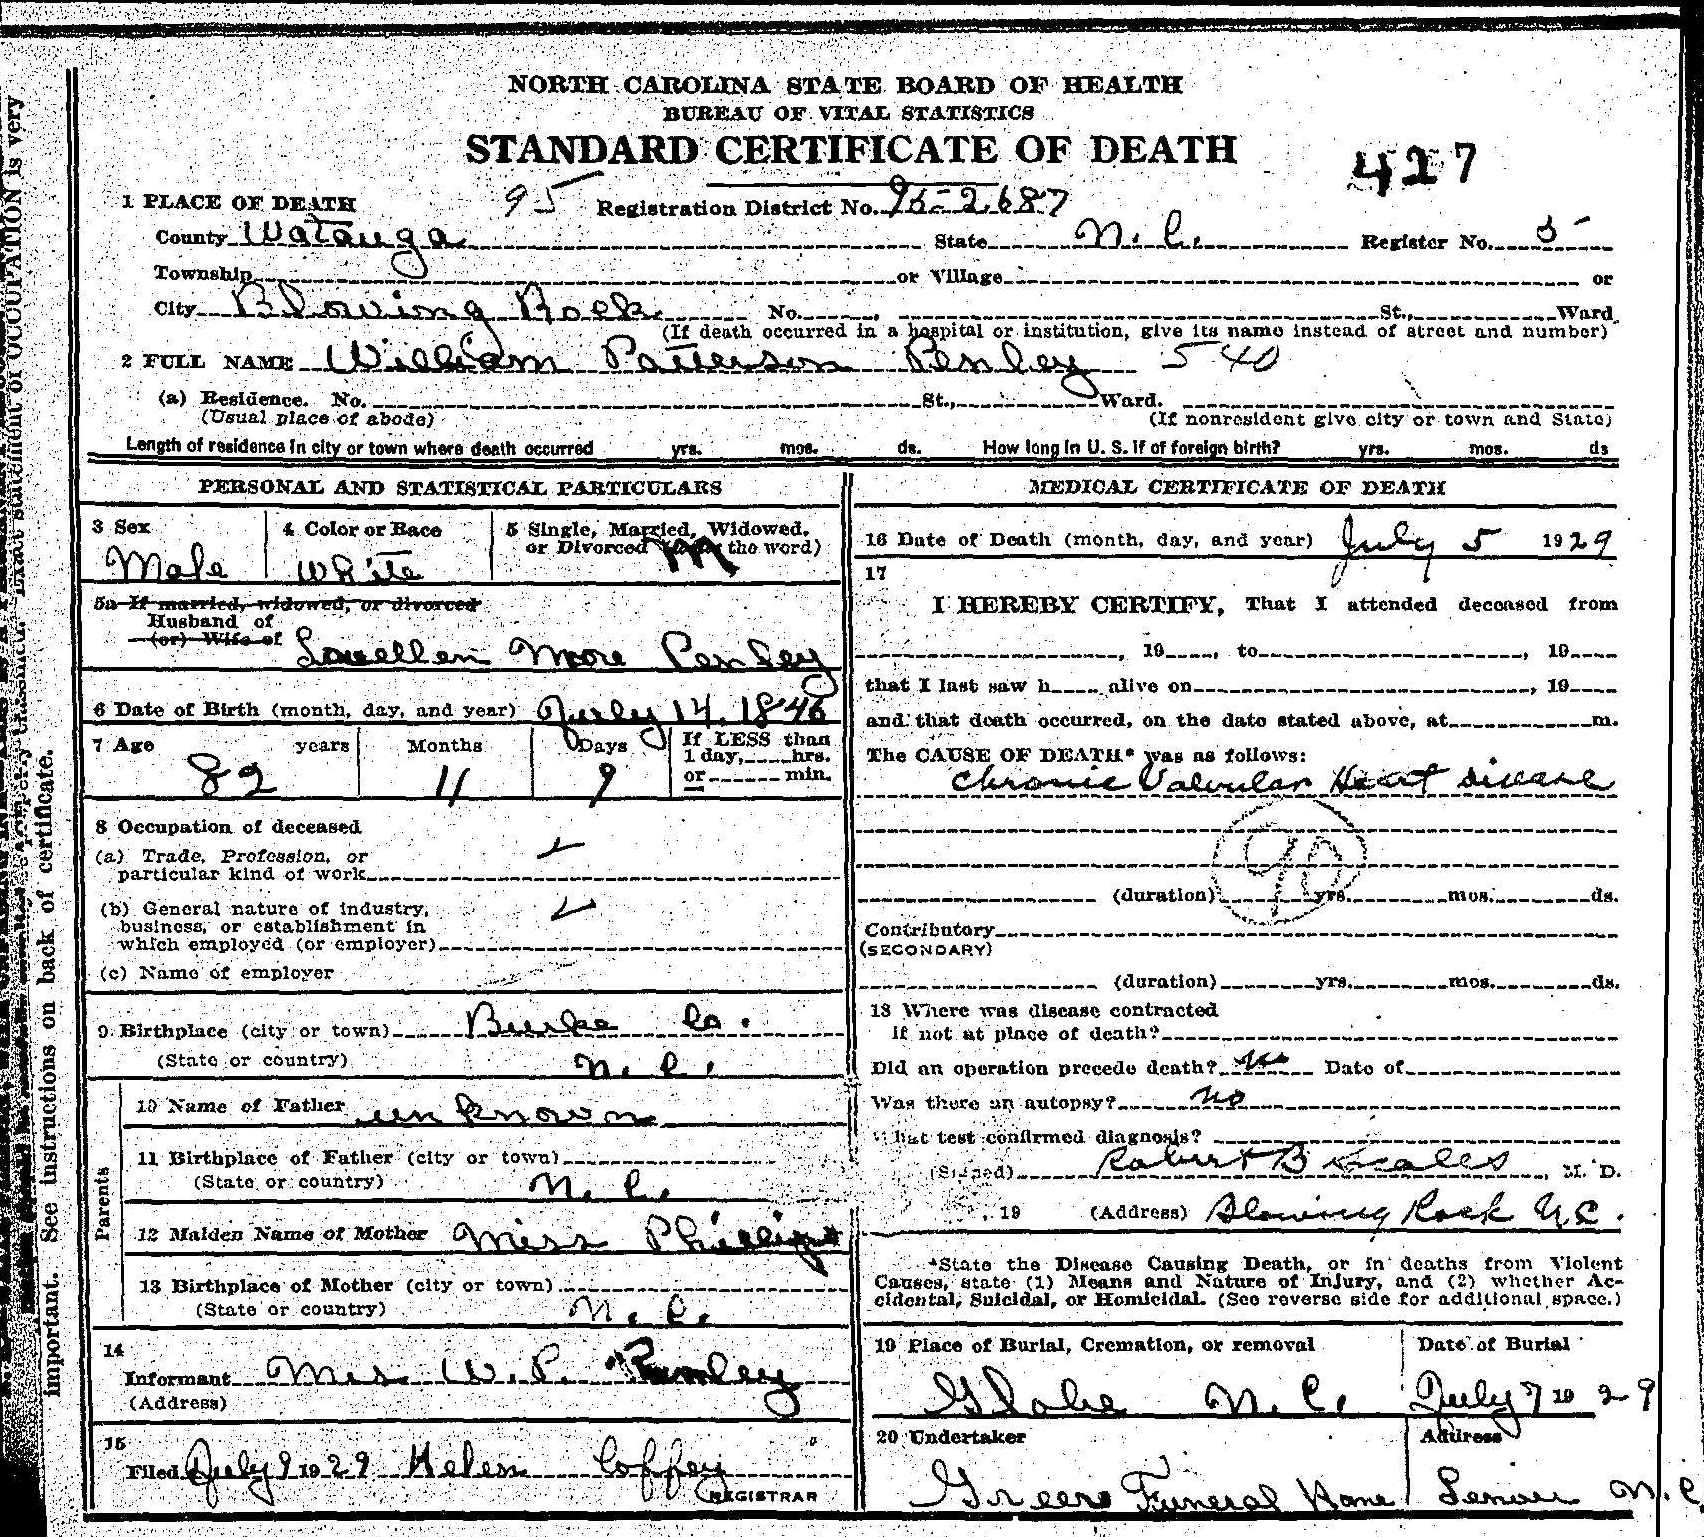 NORTH CAROLINA STATE BOARD OF HEALTH
BUREAU OF VITAL STATISTICS
STANDARD CERTIFICATE OF DEATH
427
1 PLACE OF DEATH 95 Registration District No. 95-2687
County Watauga State N. C. Register No. 5
Township or Village or
City Blowing Rock No. , St., Ward
(If death occurred in a hospital or institution, give its name instead of street and number)
2 FULL NAME William Patterson Penley 540
(a) Residence. No. St., Ward.
(Usual place of abode) (If nonresident give city or town and State)
Length of residence in city or town where death occurred yrs. mos. ds. How long in U. S. if of foreign birth? yrs. mos. ds
PERSONAL AND STATISTICAL PARTICULARS
3 Sex
Male
4 Color or Race
White
5 Single, Married, Widowed,
or Divorced the word)
M
5a If married, widowed, or divorced
Husband of
(or) Wife of Louellen Moore Penley
6 Date of Birth (month, day, and year) July 14, 1846
7 Age years Months Days If LESS than
1 day, hrs.
or min.
82 11 9
8 Occupation of deceased
(a) Trade, Profession, or
particular kind of work
(b) General nature of industry,
business, or establishment in
which employed (or employer)
(c) Name of employer
9 Birthplace (city or town) Burke Co.
(State or country) N. C.
Parents
10 Name of Father unknown
11 Birthplace of Father (city or town)
(State or country) N. C.
12 Maiden Name of Mother Miss Phillips
13 Birthplace of Mother (city or town)
(State or country) N. C.
14
Informant Mrs. W. P. Penley
(Address)
15
Filed July 9 1929 Helen Coffey
REGISTRAR
MEDICAL CERTIFICATE OF DEATH
16 Date of Death (month, day, and year) July 5 1929
17
I HEREBY CERTIFY, That I attended deceased from
, 19 , to , 19
that I last saw h alive on , 19
and that death occurred, on the date stated above, at m.
The CAUSE OF DEATH* was as follows:
Chronic Valvular Heart disease
90
(duration) yrs. mos. ds.
Contributory
(SECONDARY)
(duration) yrs. mos. ds.
18 Where was disease contracted
if not at place of death?
Did an operation precede death? no Date of
Was there an autopsy? no
What test confirmed diagnosis?
(Signed) Robert B Scales, M. D.
, 19 (Address) Blowing Rock N.C.
*State the Disease Causing Death, or in deaths from Violent
Causes, state (1) Means and Nature of Injury, and (2) whether Ac-
cidental, Suicidal, or Homicidal. (See reverse side for additional space.)
19 Place of Burial, Cremation, or removal Date of Burial
Globe N. C. July 7 19 29
20 Undertaker Address
Greers Funeral Home Lenoir N. C.
OCCUPATION is very
important. See instructions on back of certificate.